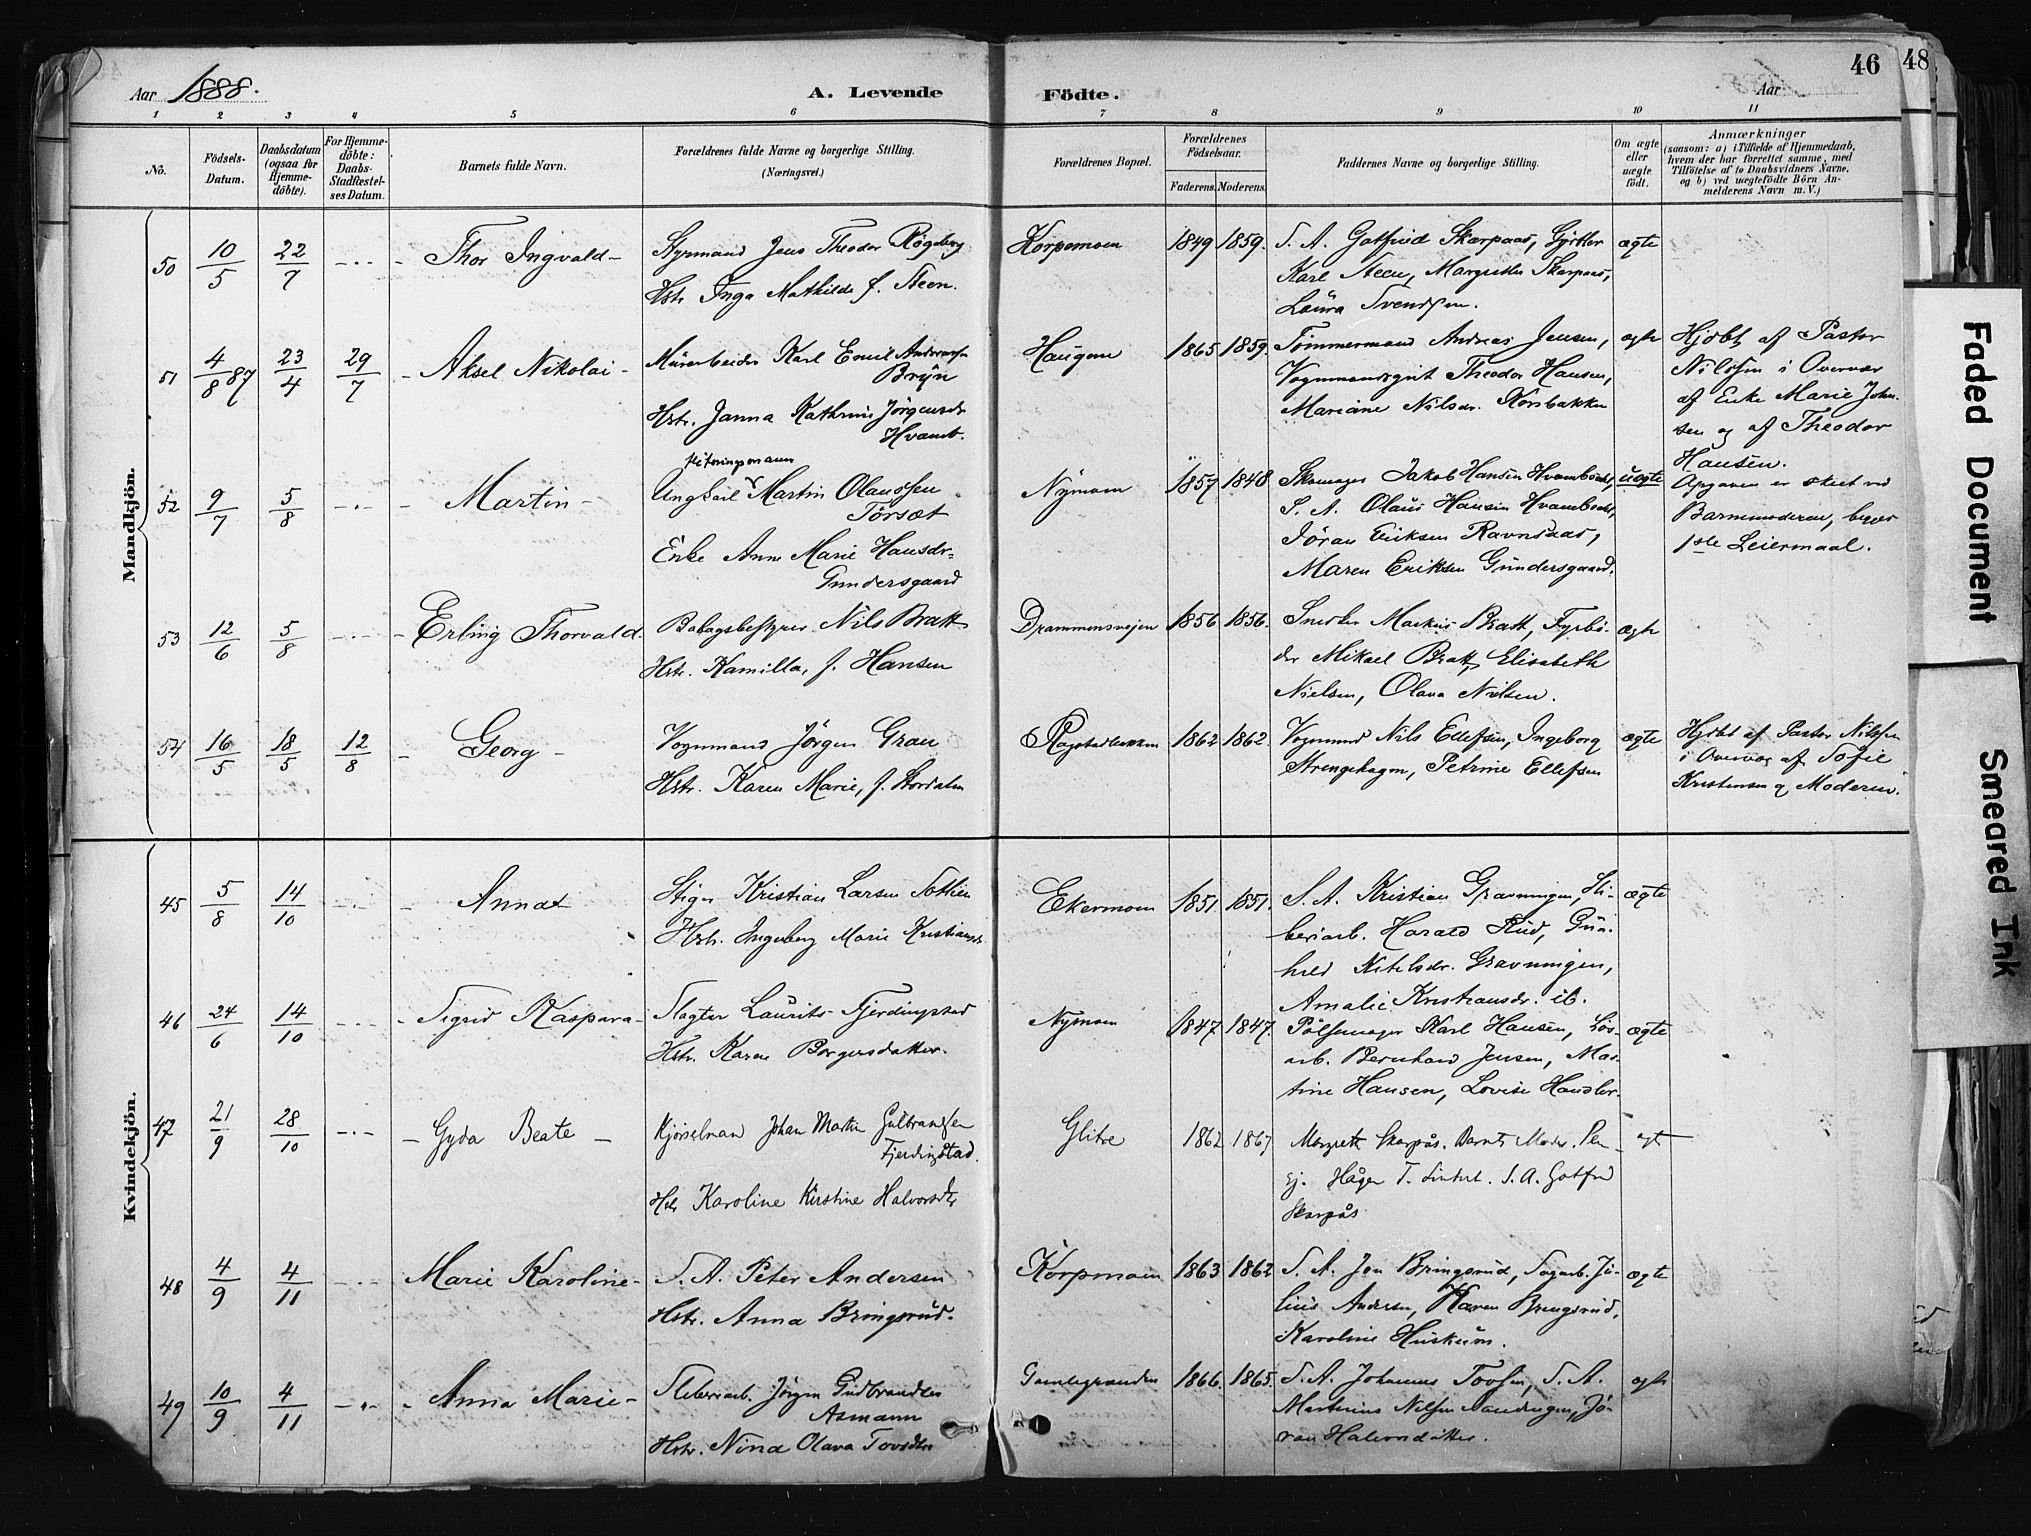 46
48
Aar 1888.
A. Levende
Födte.
Aar
1 2 3 4 5 6 7 8 9 10 11
No.
Födsels-
Datum.
Daabsdatum
(ogsaa for
Hjemme-
döbte).
For Hjemme-
döbte:
Daabs-
Stadfæstel-
ses Datum.
Barnets fulde Navn.
Forældrenes fulde Navne og borgerlige Stilling.
(Næringsvei.)
Forældrenes Bopæl.
Forældrenes
Födselsaar.
Faderens. Moderens.
Faddernes Navne og borgerlige Stilling.
Om ægte
eller
uægte
født.
Anmærkninger
(saasom: a) i Tilfælde af Hjemmedaab,
hvem der har forrettet samme, med
Tilföielse af to Daabsvidners Navne,
og b) ved uægtefödte Börn An-
melderens Navn m. V.)
Mandkjön.
50 10/5 22/7 - Thor Ingvald - Styrmand Jens Theodor Røgeberg
Hstr. Inga Mathilde f. Steen.
Korpemoen 1849 1859. S. A. Gotfried Skarpaas, Gjørtler ægte
Karl Steen, Margrethe Skarpaas,
Laura Svendsen.
51 4/8 87 23/4 29/7 - Aksel Nikolai - Murarbeider Karl Emil Andreassen
Bryn
Hstr. Janna Kathrine Jörgensdr
Hvamb.
Haugene 1865 1859. Tömmermand Andreas Jensen, ægte
Vognmandsgut Theodor Hansen,
Mariane Nilsdr. Korsbakken
Hjdbt af Pastor
Nilssen i Overvær
af Enke Marie John-
sen og af Theodor
Hansen.
52 9/7 5/8 - Martin - Ungkarl Martin Olaussen
Torsæt
Enke Anne Marie Hansdr
Gundersgaard
Nymoen 1857 1848 Skomager Jakob Hansen Hvambodd, uægte
S. A. Olaus Hansen Hvambodd,
Jöran Eriksen Ravnsaas,
Maren Eriksen Gundersgaard.
Opgaven er skeet ved
Barnmoderen, begges
1ste Leiermaal.
53 12/6 5/8 - Erling Thorvald - Nils Bratt
Hstr. Kamilla, f. Hansen
Drammensvejen 1856 1856. Snedker Markus Bratt, Fyrbö- ægte
der Mikael Bratt, Elisabeth
Nielsen, Olava Nielsen.
54 16/5 18/5 12/8 - Georg - Vognmand Jörgen Grau
Hstr. Karen Marie, f. Stordalen
Ragstadbakken 1862 1862. Vognmand Nils Ellefsen, Ingeborg ægte
Strengehagen, Petrine Ellefsen
Hjdbt af Pastor Nilssen
i Overvær af Sofie
Kristensen og Moderen.
Kvindekjön.
45 5/8 14/10 - Anna Stiger Kristian Larsen Sothen
Hstr. Ingeborg Marie Kristiansdr
Ekermoen 1851. 1851. S. A. Kristian Gravningen, Sli- ægte
beriarb. Harald Rud, Gun-
hild Ketilsdr. Gravningen,
Amalie Kristiansdr. ib.
46 24/6 14/10 - Sigrid Kaspara - Slagter Laurits Fjerdingstad
Hstr. Karen Borgersdatter.
Nymoen 1847 1847. Pölsemager Karl Hansen, Lös- ægte
arb. Bernhard Jensen, Mar-
tine Hansen, Lovise Handler.
47 21/9 28/10 - Gyda Beate - Kjörselman Johan Martin Gulbrandsen
Fjerdingstad.
Hstr Karoline Kirstine Halvorsdtr
Glitre 1862 1867 Margrete Skarpås. Barnets Moder. ægt
Ej. Håger T. S. A. Gotfred
Skarpås
48 4/9 4/11 - Marie Karoline - S. A. Peter Andersen
Hstr. Anna Bringsrud.
Korpmoen 1863 1862 S. A. Jon Bringsrud, Sagarb. Ju- ægte
lius Andersen, Karen Bringsrud,
Karoline Huskum.
49 10/9 4/11 - Anna Marie - Sliberiarb. Jörgen Gudbrandsen
Asmann
Hstr. Nina Olava Tovsdtr
Gamlegranden 1866. 1865. S. A. Johannes Tovsen, S. A. ægte
Martinius Nilsen, Jö-
ran Halvorsdatter.
Faded Document
Smeared Ink